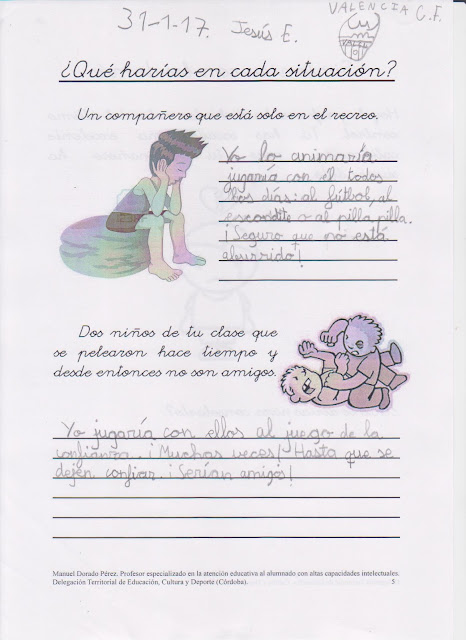 31-1-17. Jesús E. VALENCIA C.F.
¿Qué harías en cada situación?
Un compañero que está solo en el recreo.
Yo lo animaría
jugaría con el todos
los días: al fútbol, al
escondite o al pilla, pilla.
¡Seguro que no está
aburrido!
Dos niños de tu clase que
se pelearon hace tiempo y
desde entonces no son amigos.
Yo jugaría con ellos al juego de la
confianza. ¡Muchas veces! Hasta que se
dejen confiar. ¡Serían amigos!
Manuel Dorado Pérez. Profesor especializado en la atención educativa al alumnado con altas capacidades intelectuales.
Delegación Territorial de Educación, Cultura y Deporte (Córdoba). 5